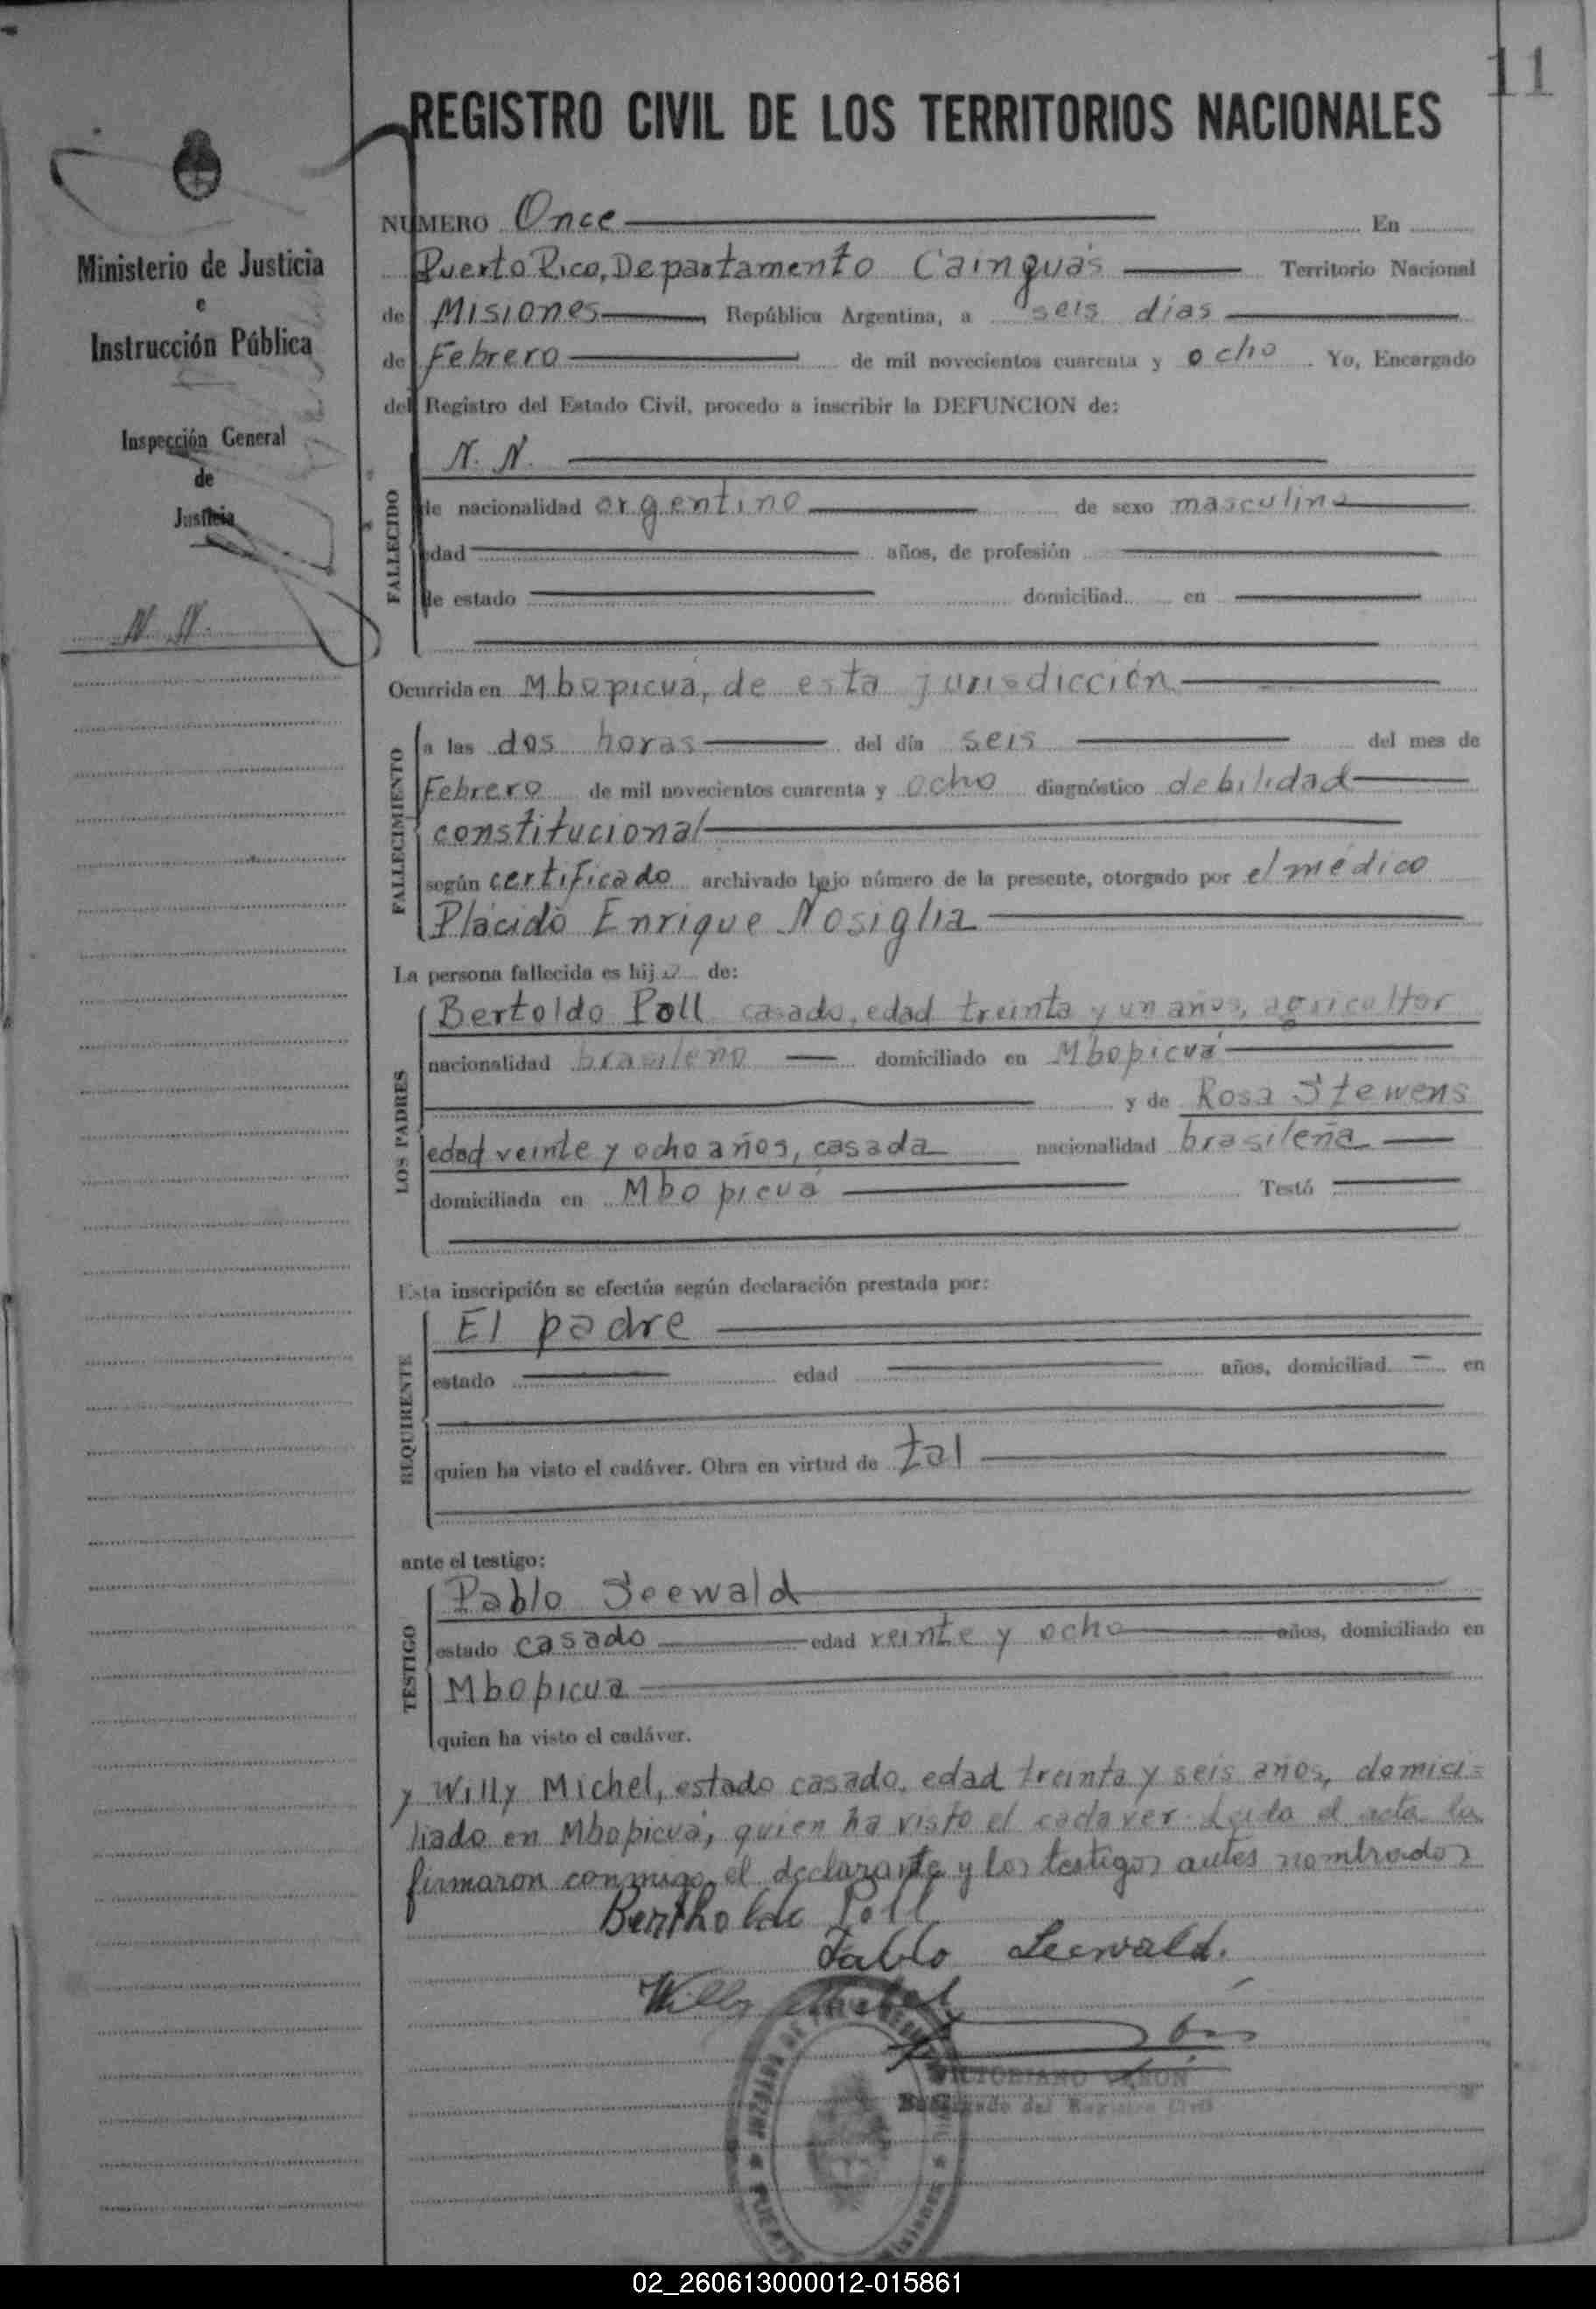 11
REGISTRO CIVIL DE LOS TERRITORIOS NACIONALES
Ministerio de Justicia
e
Instrucción Pública
Inspección General
de
Justicia
N. N.
NUMERO Once En
Puerto Rico, Departamento Cainguás Territorio Nacional
de Misiones República Argentina, a seis días
de Febrero de mil novecientos cuarenta y ocho. Yo, Encargado
del Registro del Estado Civil, procedo a inscribir la DEFUNCION de:
FALLECIDO
N. N.
de nacionalidad argentino de sexo masculino
edad años, de profesión
de estado domiciliad en
Ocurrida en Mbopicuá, de esta jurisdicción
FALLECIMIENTO
a las dos horas del día seis del mes de
Febrero de mil novecientos cuarenta y ocho diagnóstico debilidad
constitucional
según certificado archivado bajo número de la presente, otorgado por el médico
Plácido Enrique Nosiglia
La persona fallecida es hijo de:
LOS PADRES
Bertoldo Poll casado, edad treinta y un años, agricultor
nacionalidad brasileño domiciliado en Mbopicuá
y de Rosa Stewens
edad veinte y ocho años, casada nacionalidad brasileña
domiciliada en Mbopicuá Testó
Esta inscripción se efectúa según declaración prestada por:
REQUIRENTE
El padre
estado edad años, domiciliad en
quien ha visto el cadáver. Obra en virtud de tal
ante el testigo:
TESTIGO
Pablo Seewald
estado casado edad veinte y ocho años, domiciliado en
Mbopicua
quien ha visto el cadáver.
y Willy Michel, estado casado, edad treinta y seis años, domici=
liado en Mbopicuá, quien ha visto el cadaver. Leida el acta la
firmaron conmigo, el declarante y los testigos antes nombrados
Bertholdo Poll
Pablo Seewald.
Willy Michel
Encargado del Registro Civil
02_260613000012-015861